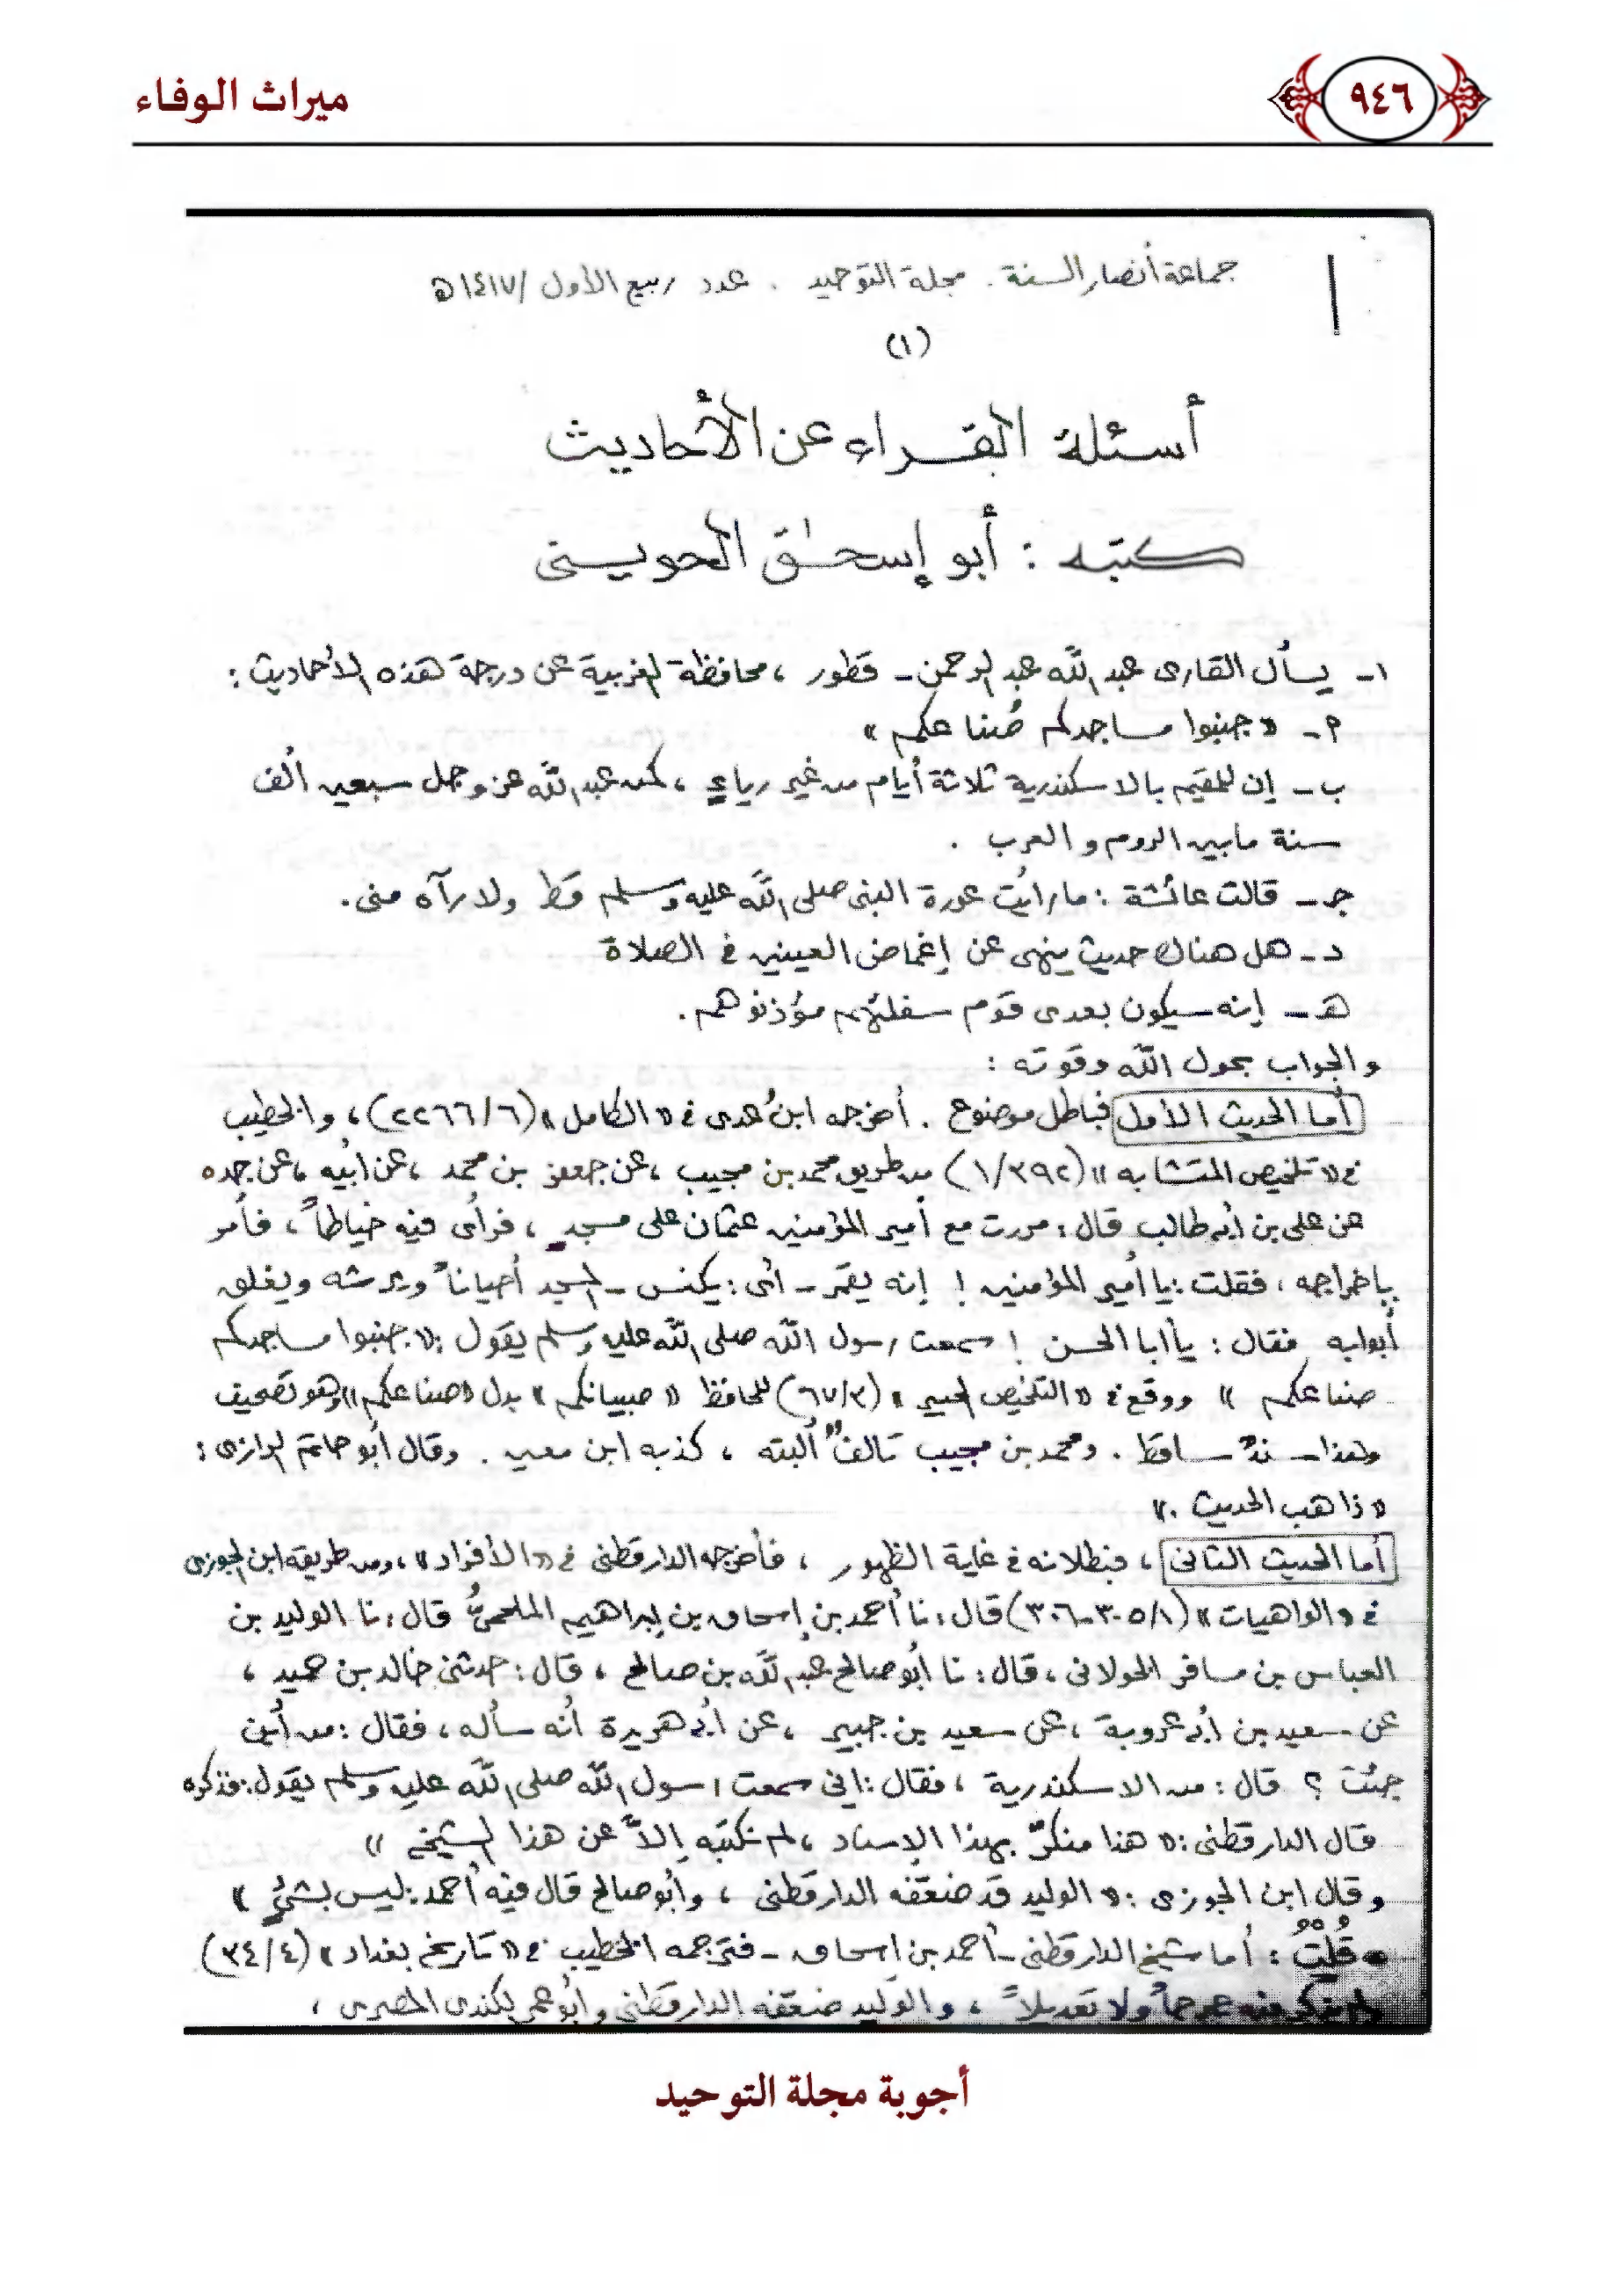 ميراث الوفاء
٩٤٦
جماعة أنصار السنة . مجلة التوحيد . عدد ربيع الأول /١٤١٧ه
(١)
أسئلة القراء عن الأحاديث
كتبه : أبو إسحٰق الحوينى
١- يسأل القارى عبد الله عبد الرحمن - قطور ، محافظة الغربية عن درجة هذه الأحاديث :
٢ - « جنبوا مساجدكم صُناعكم »
ب - إن للمقيم بالاسكندرية ثلاثة أيام من غير رياءٍ ، كمن عبد الله عز وجل سبعين ألف
سنة مابين الروم والعرب .
جـ - قالت عائشة : ما رأيت عورة النبى صلى الله عليه وسلم قط ولا رآه منى .
د - هل هناك حديث ينهى عن إغماض العينين فى الصلاة
هـ - إنه سيكون بعدى قوم سفلتهم مؤذنوهم .
والجواب بحول الله وقوته :
أما الحديث الأول فباطل موضوع . أخرجه ابنُ عدى فى « الكامل » (٢٢٦٦/٦) ، والخطيب
فى « تلخيص المتشابه » (١/٣٩٢) من طريق محمد بن مجيب ، عن جعفر بن محمد ، عن أبيه ، عن جده
عن على بن أبى طالب قال : مررت مع أمير المؤمنين عثمان على مسجد ، فرأى فيه خياطاً ، فأمر
بإخراجه ، فقلت : يا أمير المؤمنين ! إنه يقمّر - أى : يكنس - المسجد أحياناً ويرشه ويغلق
أبوابه فقال : يا أبا الحسن ! سمعت رسول الله صلى الله عليه وسلم يقول : « جنبوا مساجدكم
صناعكم » ووقع فى « التلخيص الحبير » (٦٧/٣) للحافظ « صبيانكم » بدل « صناعكم » وهو تصحيف
وهذا سندٌ ساقط . ومحمد بن مجيب تالفٌ ألبته ، كذبه ابن معين . وقال أبو حاتم الرازى :
« ذاهب الحديث . »
أما الحديث الثانى ، فبطلانه فى غاية الظهور ، فأخرجه الدارقطنى فى « الأفراد » ، ومن طريقه ابن الجوزى
فى « الواهيات » (٣٠٥/١-٣٠٦) قال : نا أحمد بن إسحاق بن إبراهيم الملحمىُّ قال : نا الوليد بن
العباس بن مسافر الخولانى ، قال : نا أبو صالح عبد الله بن صالح ، قال : حدثنى خالد بن حميد ،
عن سعيد بن أبى عروبة ، عن سعيد بن جبير ، عن أبى هريرة أنه سأله ، فقال : من أين
جئت ؟ قال : من الاسكندرية ، فقال : إنى سمعت رسول الله صلى الله عليه وسلم يقول : فذكره
قال الدارقطنى : « هذا منكرٌ بهذا الإسناد ، لم نكتبه إلاَّ عن هذا الشيخ »
وقال ابن الجوزى : « الوليد قد ضعّفه الدارقطنى ، وأبو صالح قال فيه أحمد : ليس بشئ »
• قُلْتُ : أما شيخ الدارقطنى - أحمد بن إسحاق - فترجمه الخطيب فى « تاريخ بغداد » (٣٤/٤)
ولم يذكر فيه جرحاً ولا تعديلاً ، والوليد ضعّفه الدارقطنى وأبو عمر الكندى المصرى ،
أجوبة مجلة التوحيد